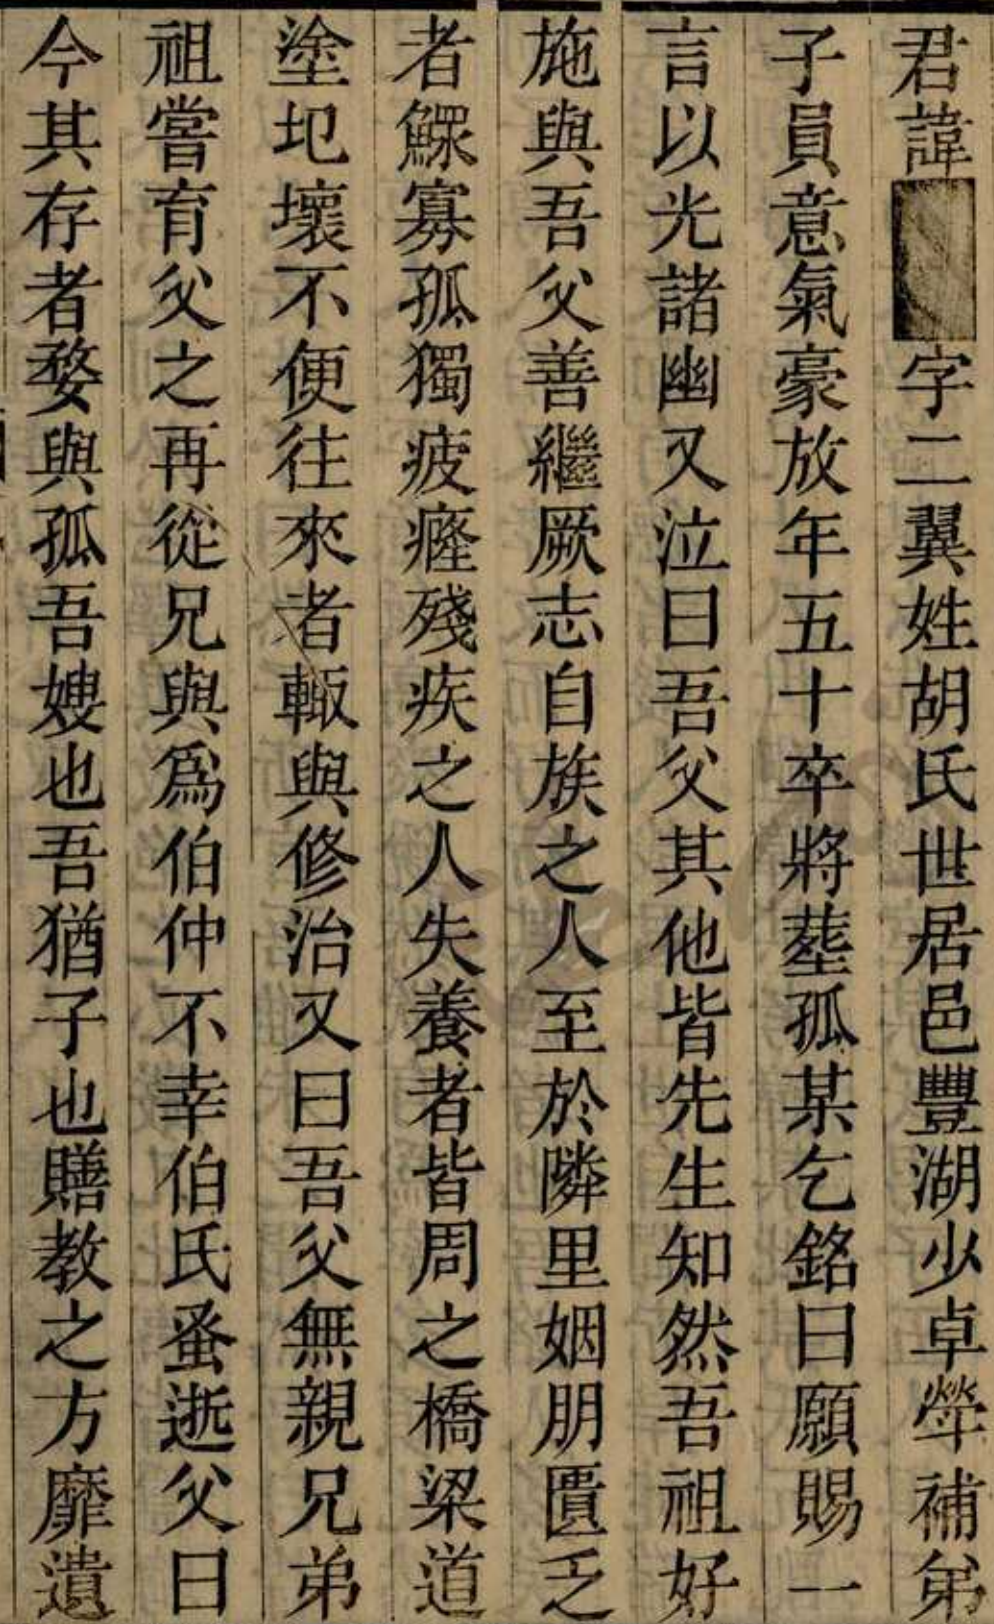 君諱字二翼姓胡氏世居邑豐湖少卓犖補弟
子員意氣豪放年五十卒將塟孤某乞銘曰願賜一
言以光諸幽又泣曰吾父其他皆先生知然吾祖好
施與吾父善繼厥志自族之人至於隣里姻朋匱乏
者鰥寡孤獨疲癃殘疾之人失養者皆周之橋梁道
塗圮壞不便往來者輙與修治又曰吾父無親兄弟
祖嘗育父之再從兄與爲伯仲不幸伯氏蚤逝父曰
今其存者婺與孤吾嫂也吾猶子也贍教之方靡遺